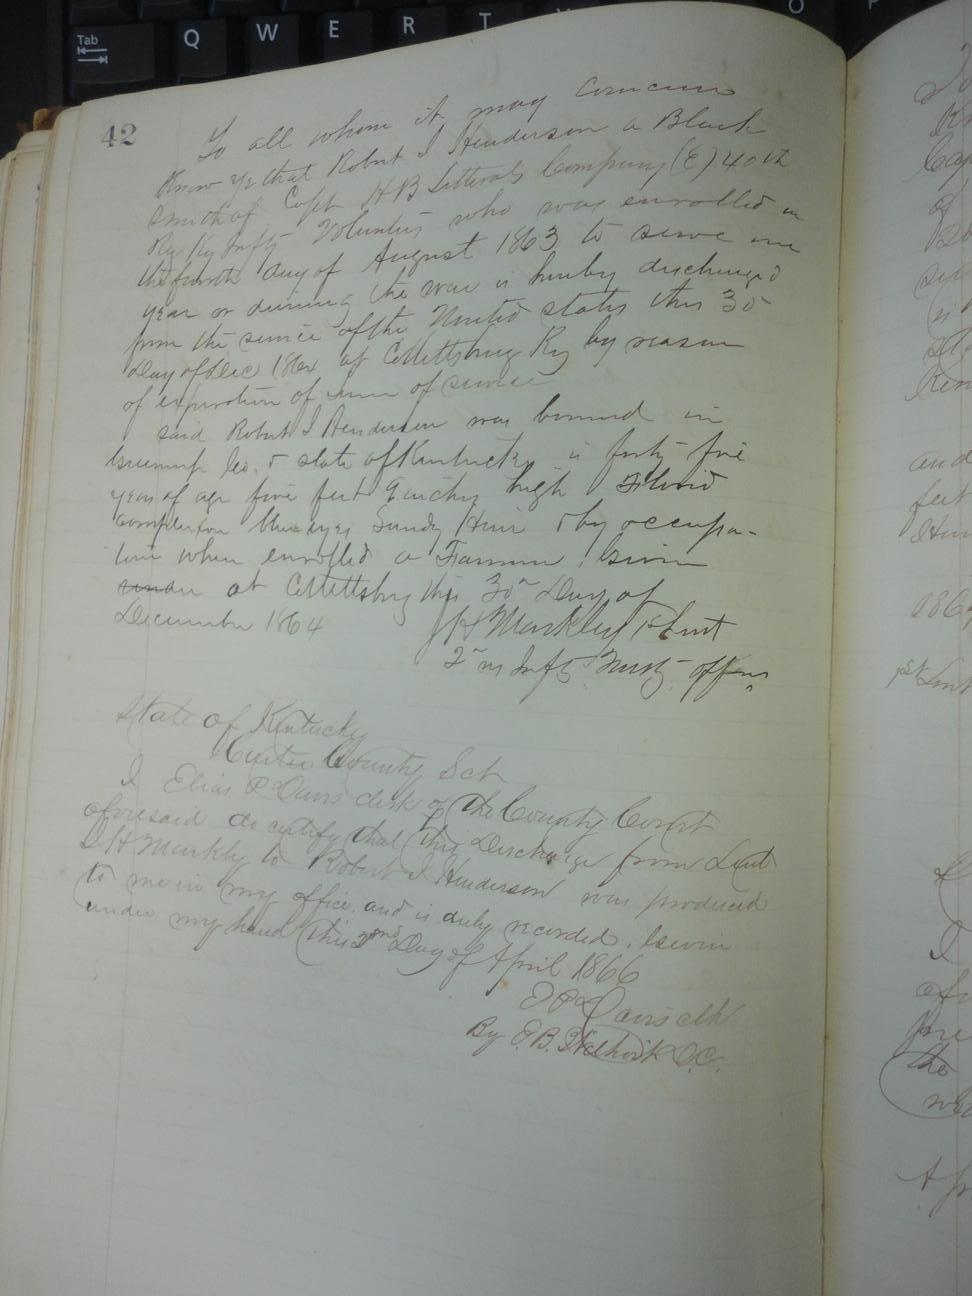 Tab
Q W E R T
O P
42
To all whom it may concern
Know ye that Robert I Henderson a Black
smith of Capt H B Litterals Company (E) 40th
Ky Infty Volunteers who was enrolled on
the fourth day of August 1863 to serve one
year or during the war is hereby discharged
from the service of the United states this 30
Day of Dec 1864 at Catlettsburg Ky by reason
of expiration of term of service
said Robert I Henderson was borned in
Greenup Co. & state of Kentucky is forty five
years of age five feet inches high Florid
complexion blue eyes Sandy Hair & by occupa-
tion when enrolled a Farmer. Given
at Catlettsburg this 30th Day of
December 1864 J H Markley 1st Lieut
Infty Must. officer
State of Kentucky
Carter County Sct
I Elias P Davis clerk of the County Court
aforesaid do certify that this Discharge from Lieut
J H Markly to Robert I Henderson was produced
to me in my office and is duly recorded. Given
under my hand this 2nd Day of April 1866
E P Davis clk
By E. B. D.C.